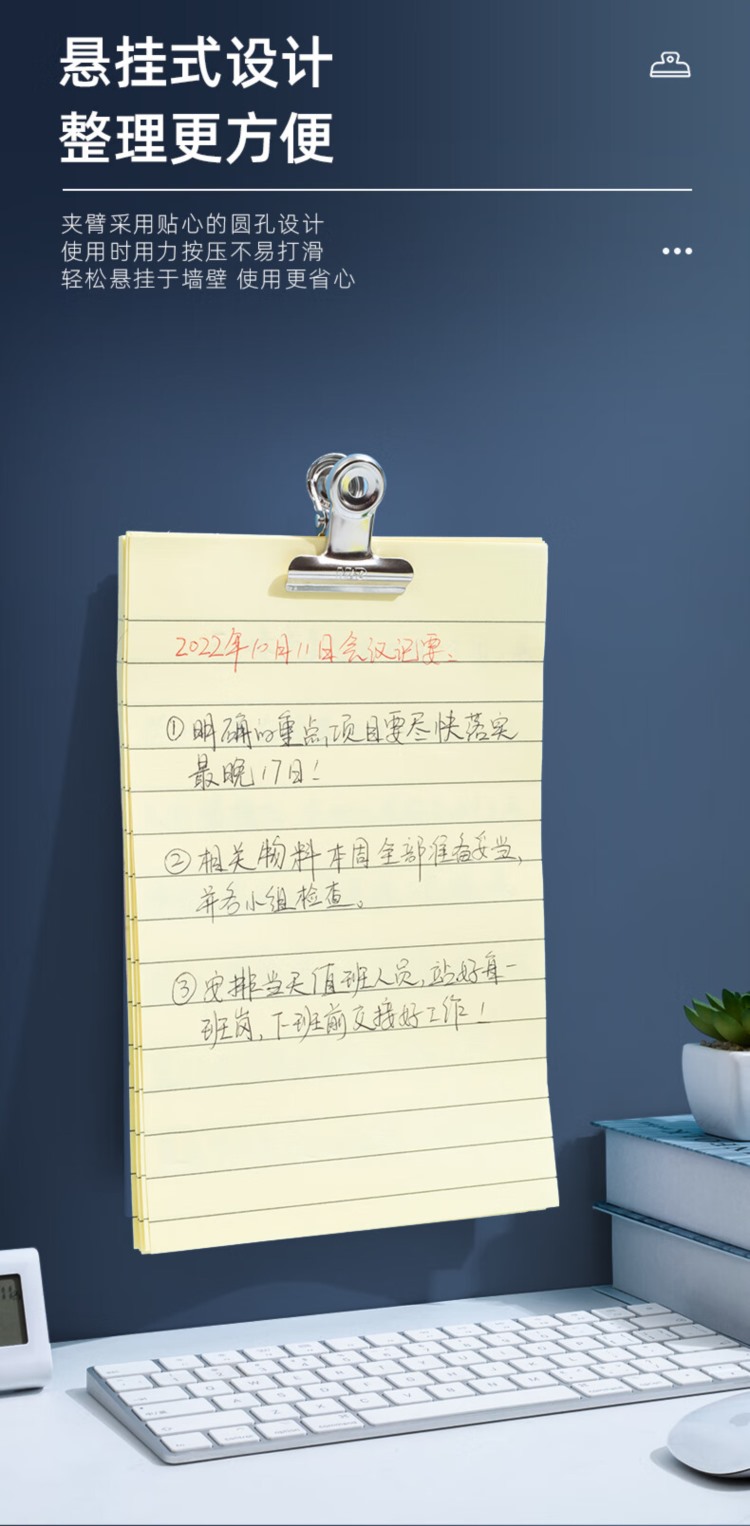 悬挂式设计
整理更方便
夹臂采用贴心的圆孔设计
使用时用力按压不易打滑
轻松悬挂于墙壁 使用更省心
2022年10月11日会议记要:
①明确的重点项目要尽快落实
最晚17日!
②相关物料本周全部准备妥当,
并各小组检查。
③安排当天值班人员,站好每一
班岗,下班前交接好工作!